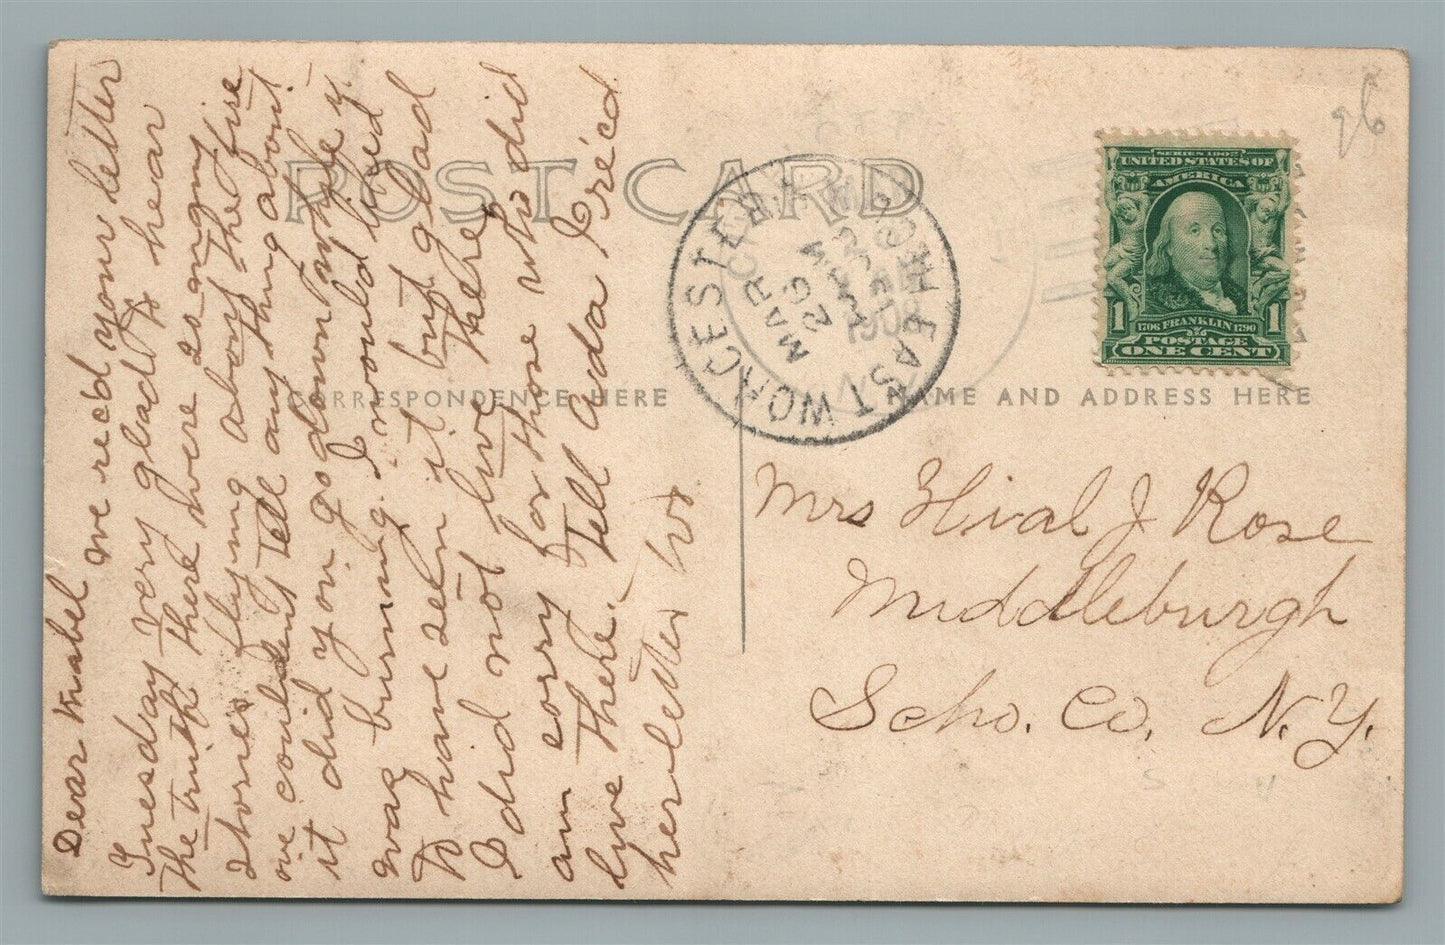 Dear Mabel
we rec'd your letter
Tuesday very glad to hear
the truth there were so many
stories flying about the fire
we couldent tell any thing about
it did you go down while y-
was burning. I would liked
to have seen it but glad
I did not live there
am sorry for those who did
live there. Tell ada I re'cd
her letter too
POST CARD
CORRESPONDENCE HERE
NAME AND ADDRESS HERE
EAST WORCESTER
MAR
26
SERIES 1902
UNITED STATES OF
AMERICA
1 1706 FRANKLIN 1790 1
POSTAGE
ONE CENT
Mrs Hival J Rose
Middleburgh
Scho. Co. N.Y.